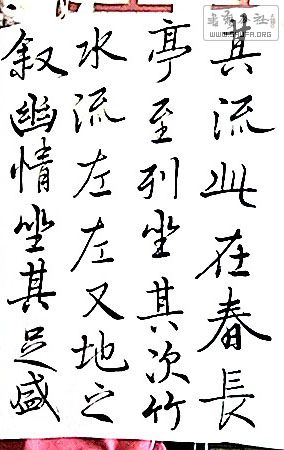 其流此在春長
亭至列坐其次竹
水流左左又地之
叙幽情坐其足盛